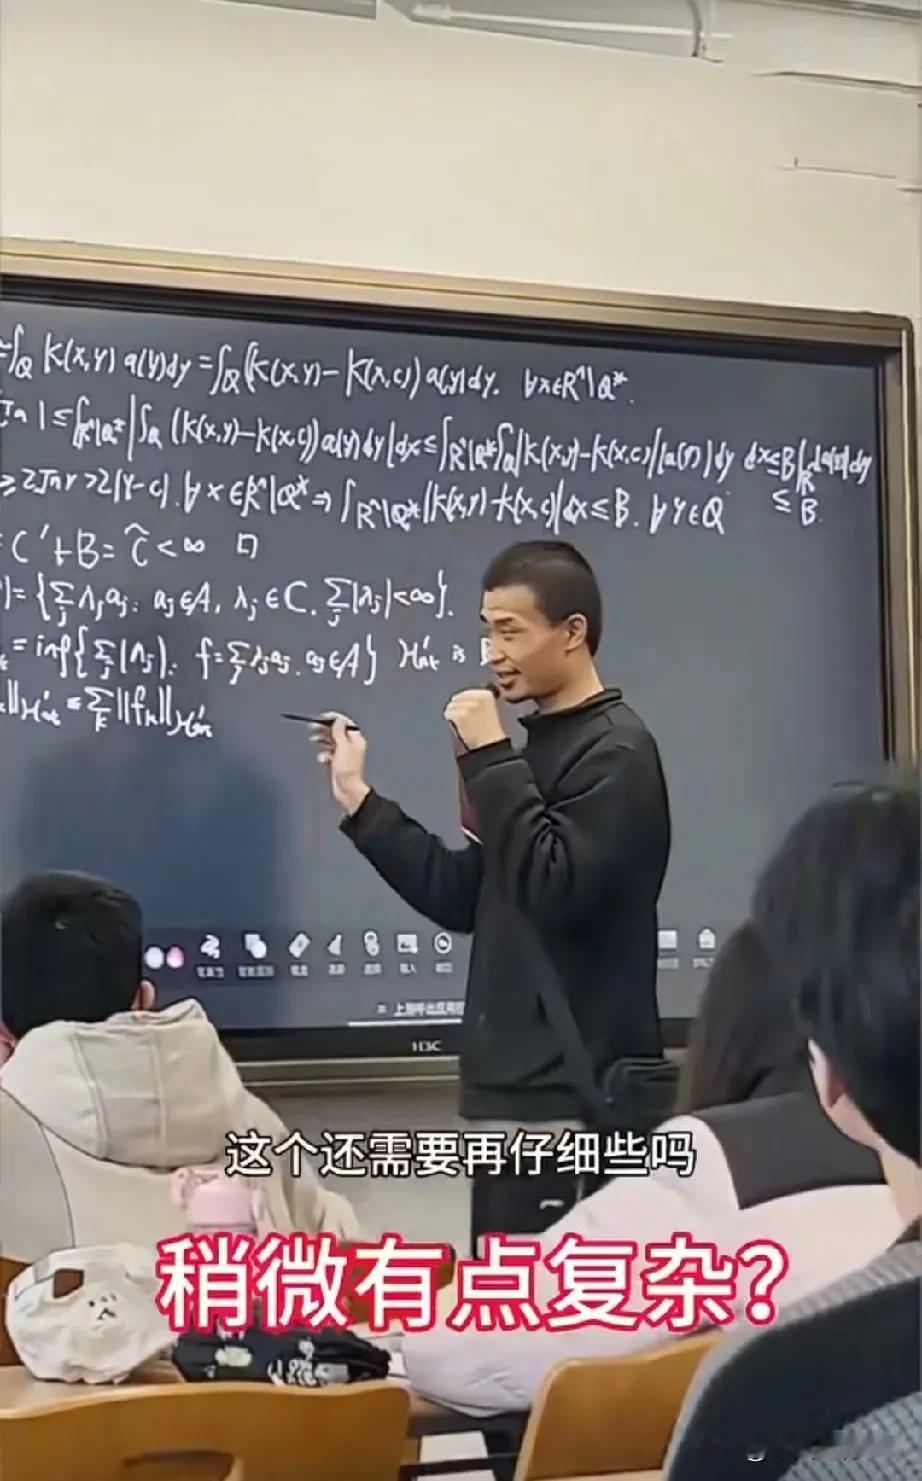 =∫_Q K(x,y) a(y)dy = ∫_Q (K(x,y) - K(x,c)) a(y)dy. ∀x∈Rⁿ\Q*.
Ta| ≤ ∫_{Rⁿ\Q*} |∫_Q (K(x,y) - K(x,c)) a(y)dy| dx ≤ ∫_{Rⁿ\Q*} ∫_Q |K(x,y) - K(x,c)| |a(y)| dy dx ≤ B∫_{Rⁿ} |a(y)| dy
≤ B.
≥ 2√n r > 2|y-c|. ∀x∈Rⁿ\Q* ⇒ ∫_{Rⁿ\Q*} |K(x,y) - K(x,c)| dx ≤ B. ∀y∈Q
= C' + B = C̃ < ∞ □
= {∑_j λ_j a_j: a_j∈A, λ_j∈C. ∑_j |λ_j| < ∞}.
= inf{∑_j |λ_j|: f = ∑_j λ_j a_j. a_j∈A} H'at is
||H'at ≤ ∑_k ||f_k||H'at
H3C
这个还需要再仔细些吗
稍微有点复杂?